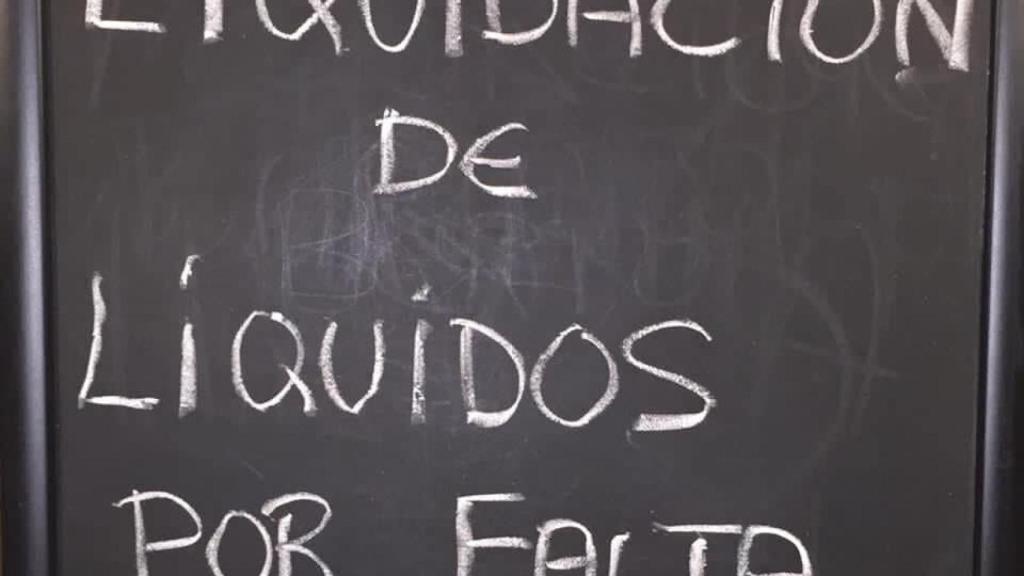 LIQUIDACIÓN
DE
LÍQUIDOS
POR FALTA